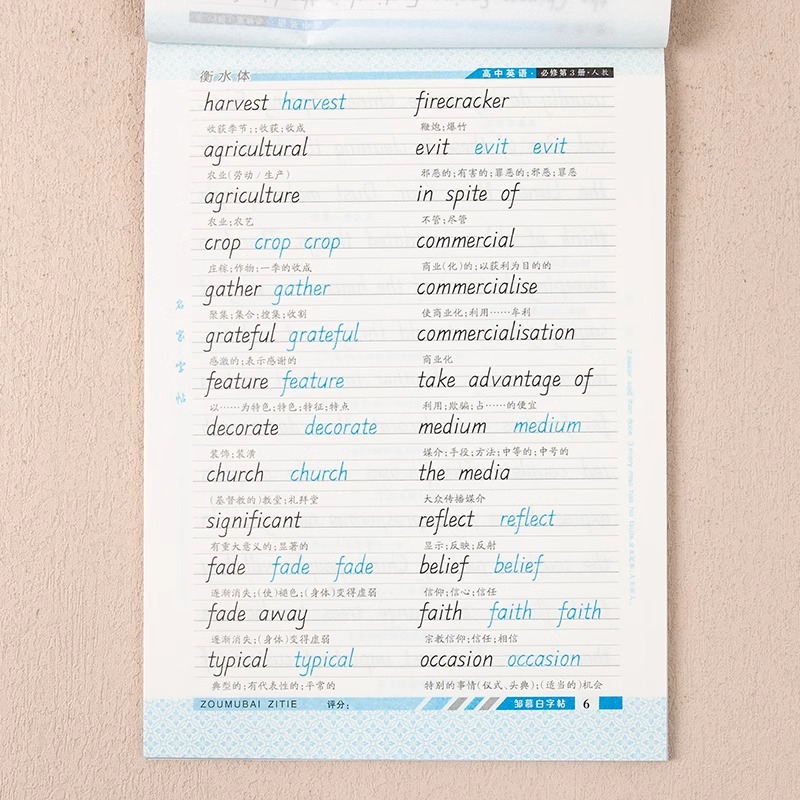 衡水体
高中英语·必修第3册·人教
harvest harvest
收获季节;;收获;收成
agricultural
农业(劳动/生产)
agriculture
农业;农艺
crop crop crop
庄稼;作物;一季的收成
gather gather
聚集;集合;搜集;收割
grateful grateful
感激的;表示感谢的
feature feature
以……为特色;特色;特征;特点
decorate decorate
装饰;装潢
church church
(基督教的)教堂;礼拜堂
significant
有重大意义的;显著的
fade fade fade
逐渐消失;(使)褪色;(身体)变得虚弱
fade away
逐渐消失;(身体)变得虚弱
typical typical
典型的;有代表性的;平常的
firecracker
鞭炮;爆竹
evit evit evit
邪恶的;有害的;罪恶的;邪恶;罪恶
in spite of
不管;尽管
commercial
商业(化)的;以获利为目的的
commercialise
使商业化;利用……牟利
commercialisation
商业化
take advantage of
利用;欺骗;占……的便宜
medium medium
媒介;手段;方法;中等的;中号的
the media
大众传播媒介
reflect reflect
显示;反映;反射
belief belief
信仰;信心;信任
faith faith faith
宗教信仰;信任;相信
occasion occasion
特别的事情(仪式、头典);(适当的)机会
名家字帖
ZOUMUBAI ZITIE 评分:
邹慕白字帖 6